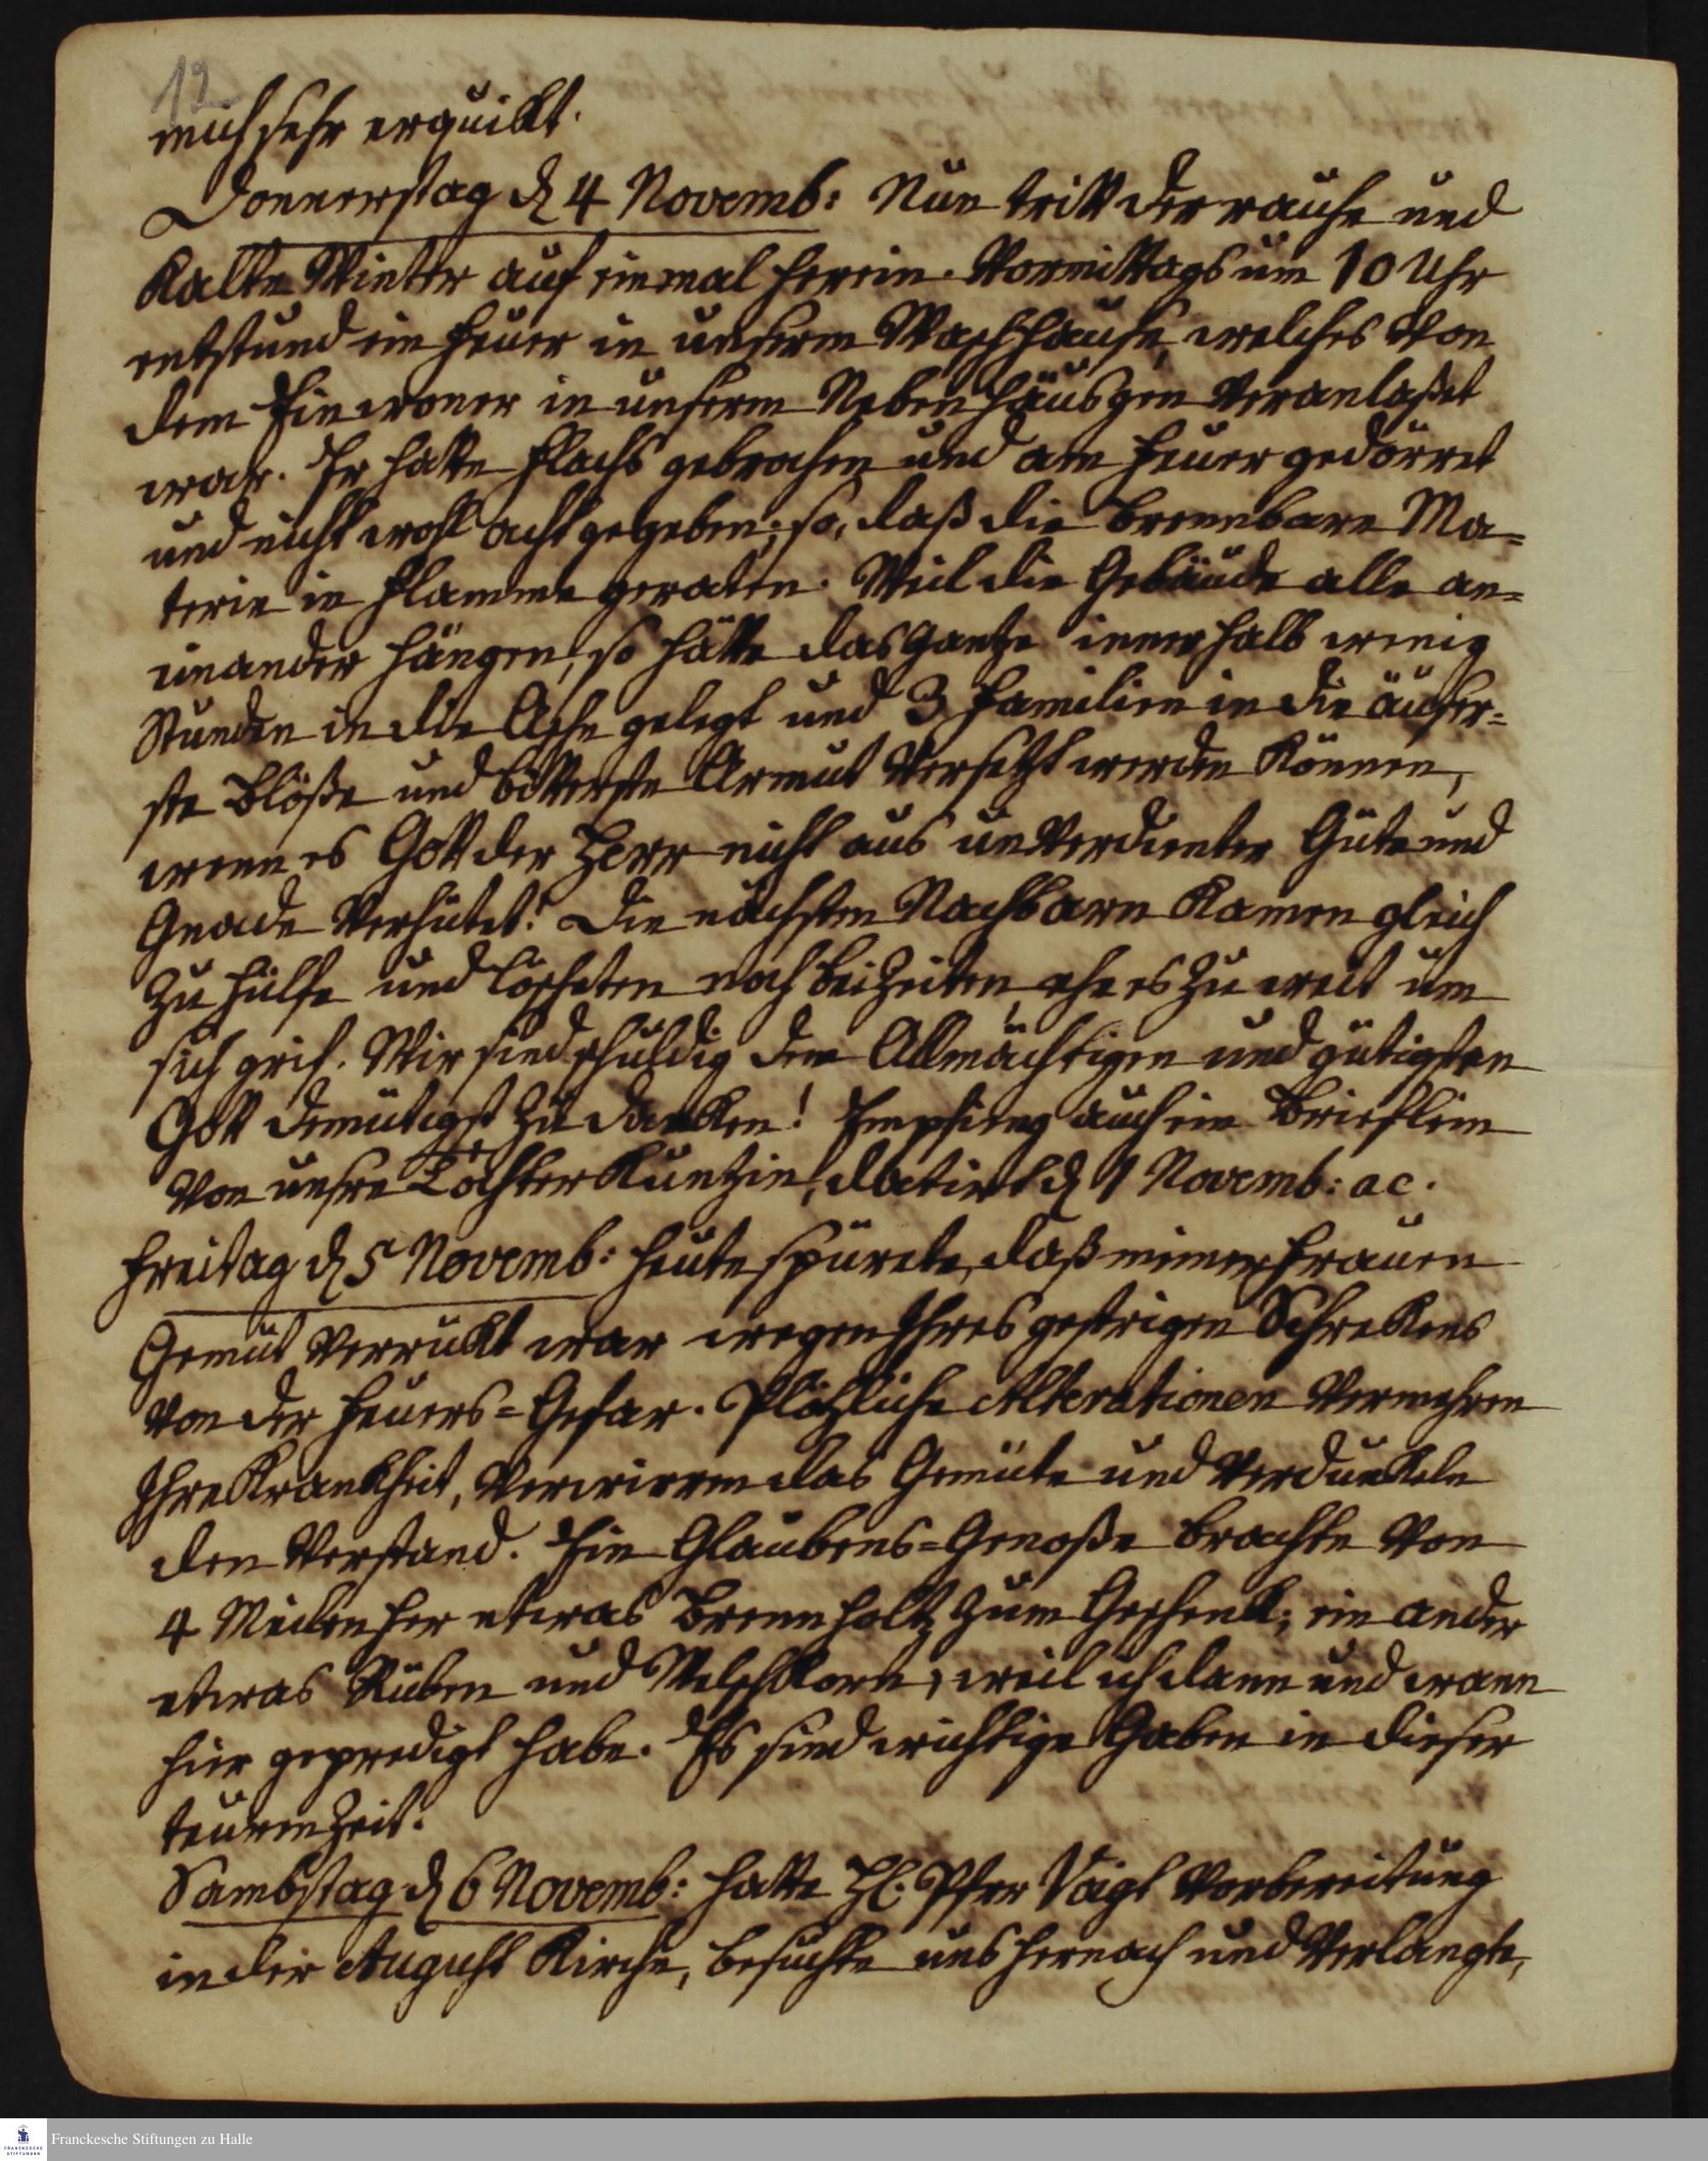 12
mich sehr erquikt.
Donnerstag d 4 Novemb: Nun tritt der rauhe und
Kalte Winter auf einmal herein. Vormittags um 10 Uhr
entstund ein Feuer in unserm Waschhause, welches von
dem Einwoner in unserm Neben Häusgen veranlaßet
war. Er hatte Flachs gebrochen und am Feuer gedörret
und nicht wohl acht gegeben; so, daß die brennbare Ma=
terie in Flamme geraten. Weil die Gebäude alle an=
einander hängen, so hätte das gantze innerhalb wenig
Stunden in die Asche gelegt und 3 Familien in die äuser=
ste Blöße und bitterste Armut versetzt werden Können,
wenn es Gott der Herr nicht aus unverdienter Güte und
Gnade verhütet! Die nächsten Nachbarn Kamen gleich
zu Hülfe und löscheten noch bei Zeiten, ehe es zu weit um
sich grif. Wir sind schuldig dem Allmächtigen und gütigsten
Gott demütigst zu danken! Empfieng auch ein Brieflein
von unsre Tochter Kuntzin, datirt d 1 Novemb: ac.
Freitag d 5 Novemb: Heute spürete, daß meiner Frauen
Gemüt verrükt war wegen Ihres gestrigen Schrekens
von der Feuers=Gefar. Plözliche Alterationen vermehren
Ihre Krankheit, verwirren das Gemüte und verdunkeln
den Verstand. Ein Glaubens=Genoße brachte von
4 Meilen her etwas Brennholtz zum Geschenk; ein ander
etwas Rüben und Welschkorn, weil ich dann und wann
hier gepredigt habe. Es sind wichtige Gaben in dieser
teuren Zeit.
Sambstag d 6 Novemb: hatte H. Pfer Voigt Vorbereitung
in der August Kirche, besuchte uns hernach und verlangte,
Franckesche Stiftungen zu Halle